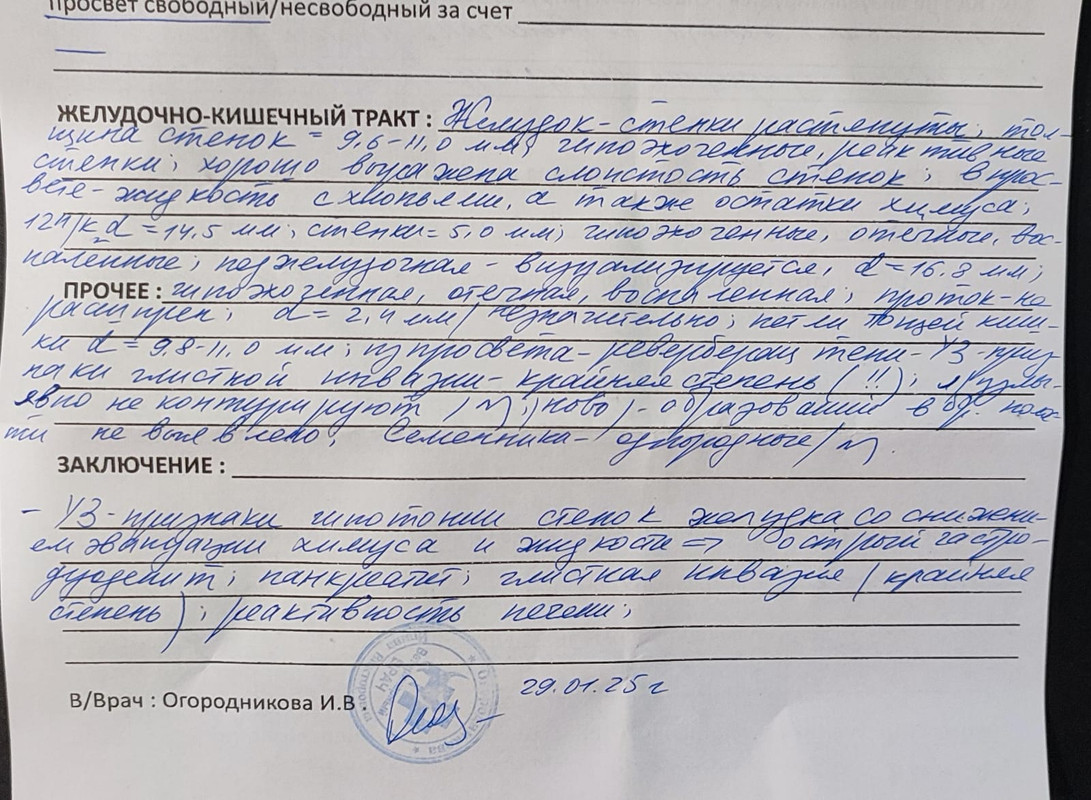 просвет свободный/несвободный за счет
ЖЕЛУДОЧНО-КИШЕЧНЫЙ ТРАКТ : Желудок - стенки растянуты, тол-
щина стенок = 9,6-11,0 мм, гипоэхогенные, реактивные
стенки; хорошо выражена слоистость стенок; в прос-
вете - жидкость с хлопьями, а также остатки химуса;
12п/к d = 14,5 мм; стенки = 5,0 мм; гипоэхогенные, отечные, вос-
паленные; поджелудочная - визуализируется, d = 16,8 мм;
ПРОЧЕЕ : гипоэхогенная, отечная, воспаленная; проток - не
расширен; d = 2,4 мм / незначительно; петли тощей киш-
ки d = 9,8-11,0 мм; из просвета - реверберац тени - УЗ-приз
наки глистной инвазии - крайняя степень (!!); л/узлы-
явно не контурируют / N; (ново) - образований в бр. полос-
ти не выявлено; Семенники - однородные / N
ЗАКЛЮЧЕНИЕ :
- УЗ-признаки гипотонии стенок желудка со снижени-
ем эвакуации химуса и жидкости => острый гастро-
дуоденит; панкреатит; глистная инвазия (крайняя
степень); реактивность печени;
В/Врач : Огородникова И.В.
29.01.25 г
ВРАЧ